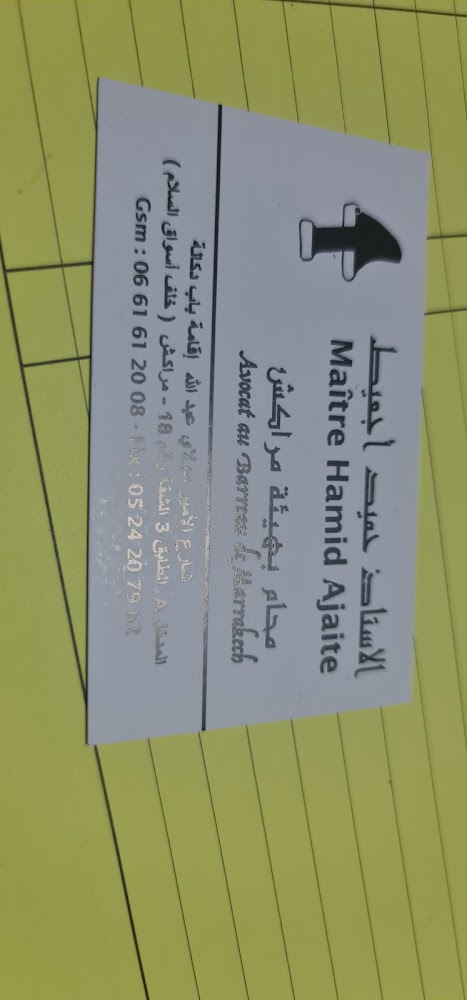 الأستاذ حميد أجعيط
Maître Hamid Ajaite
محام بهيئة مراكش
Avocat au Barreau de Marrakech
شارع الأمير مولاي عبد الله إقامة باب دكالة
A الطابق 3 الشقة رقم 18 - مراكش ( خلف أسواق السلام )
Gsm : 06 61 61 20 08 - Fix : 05 24 20 79